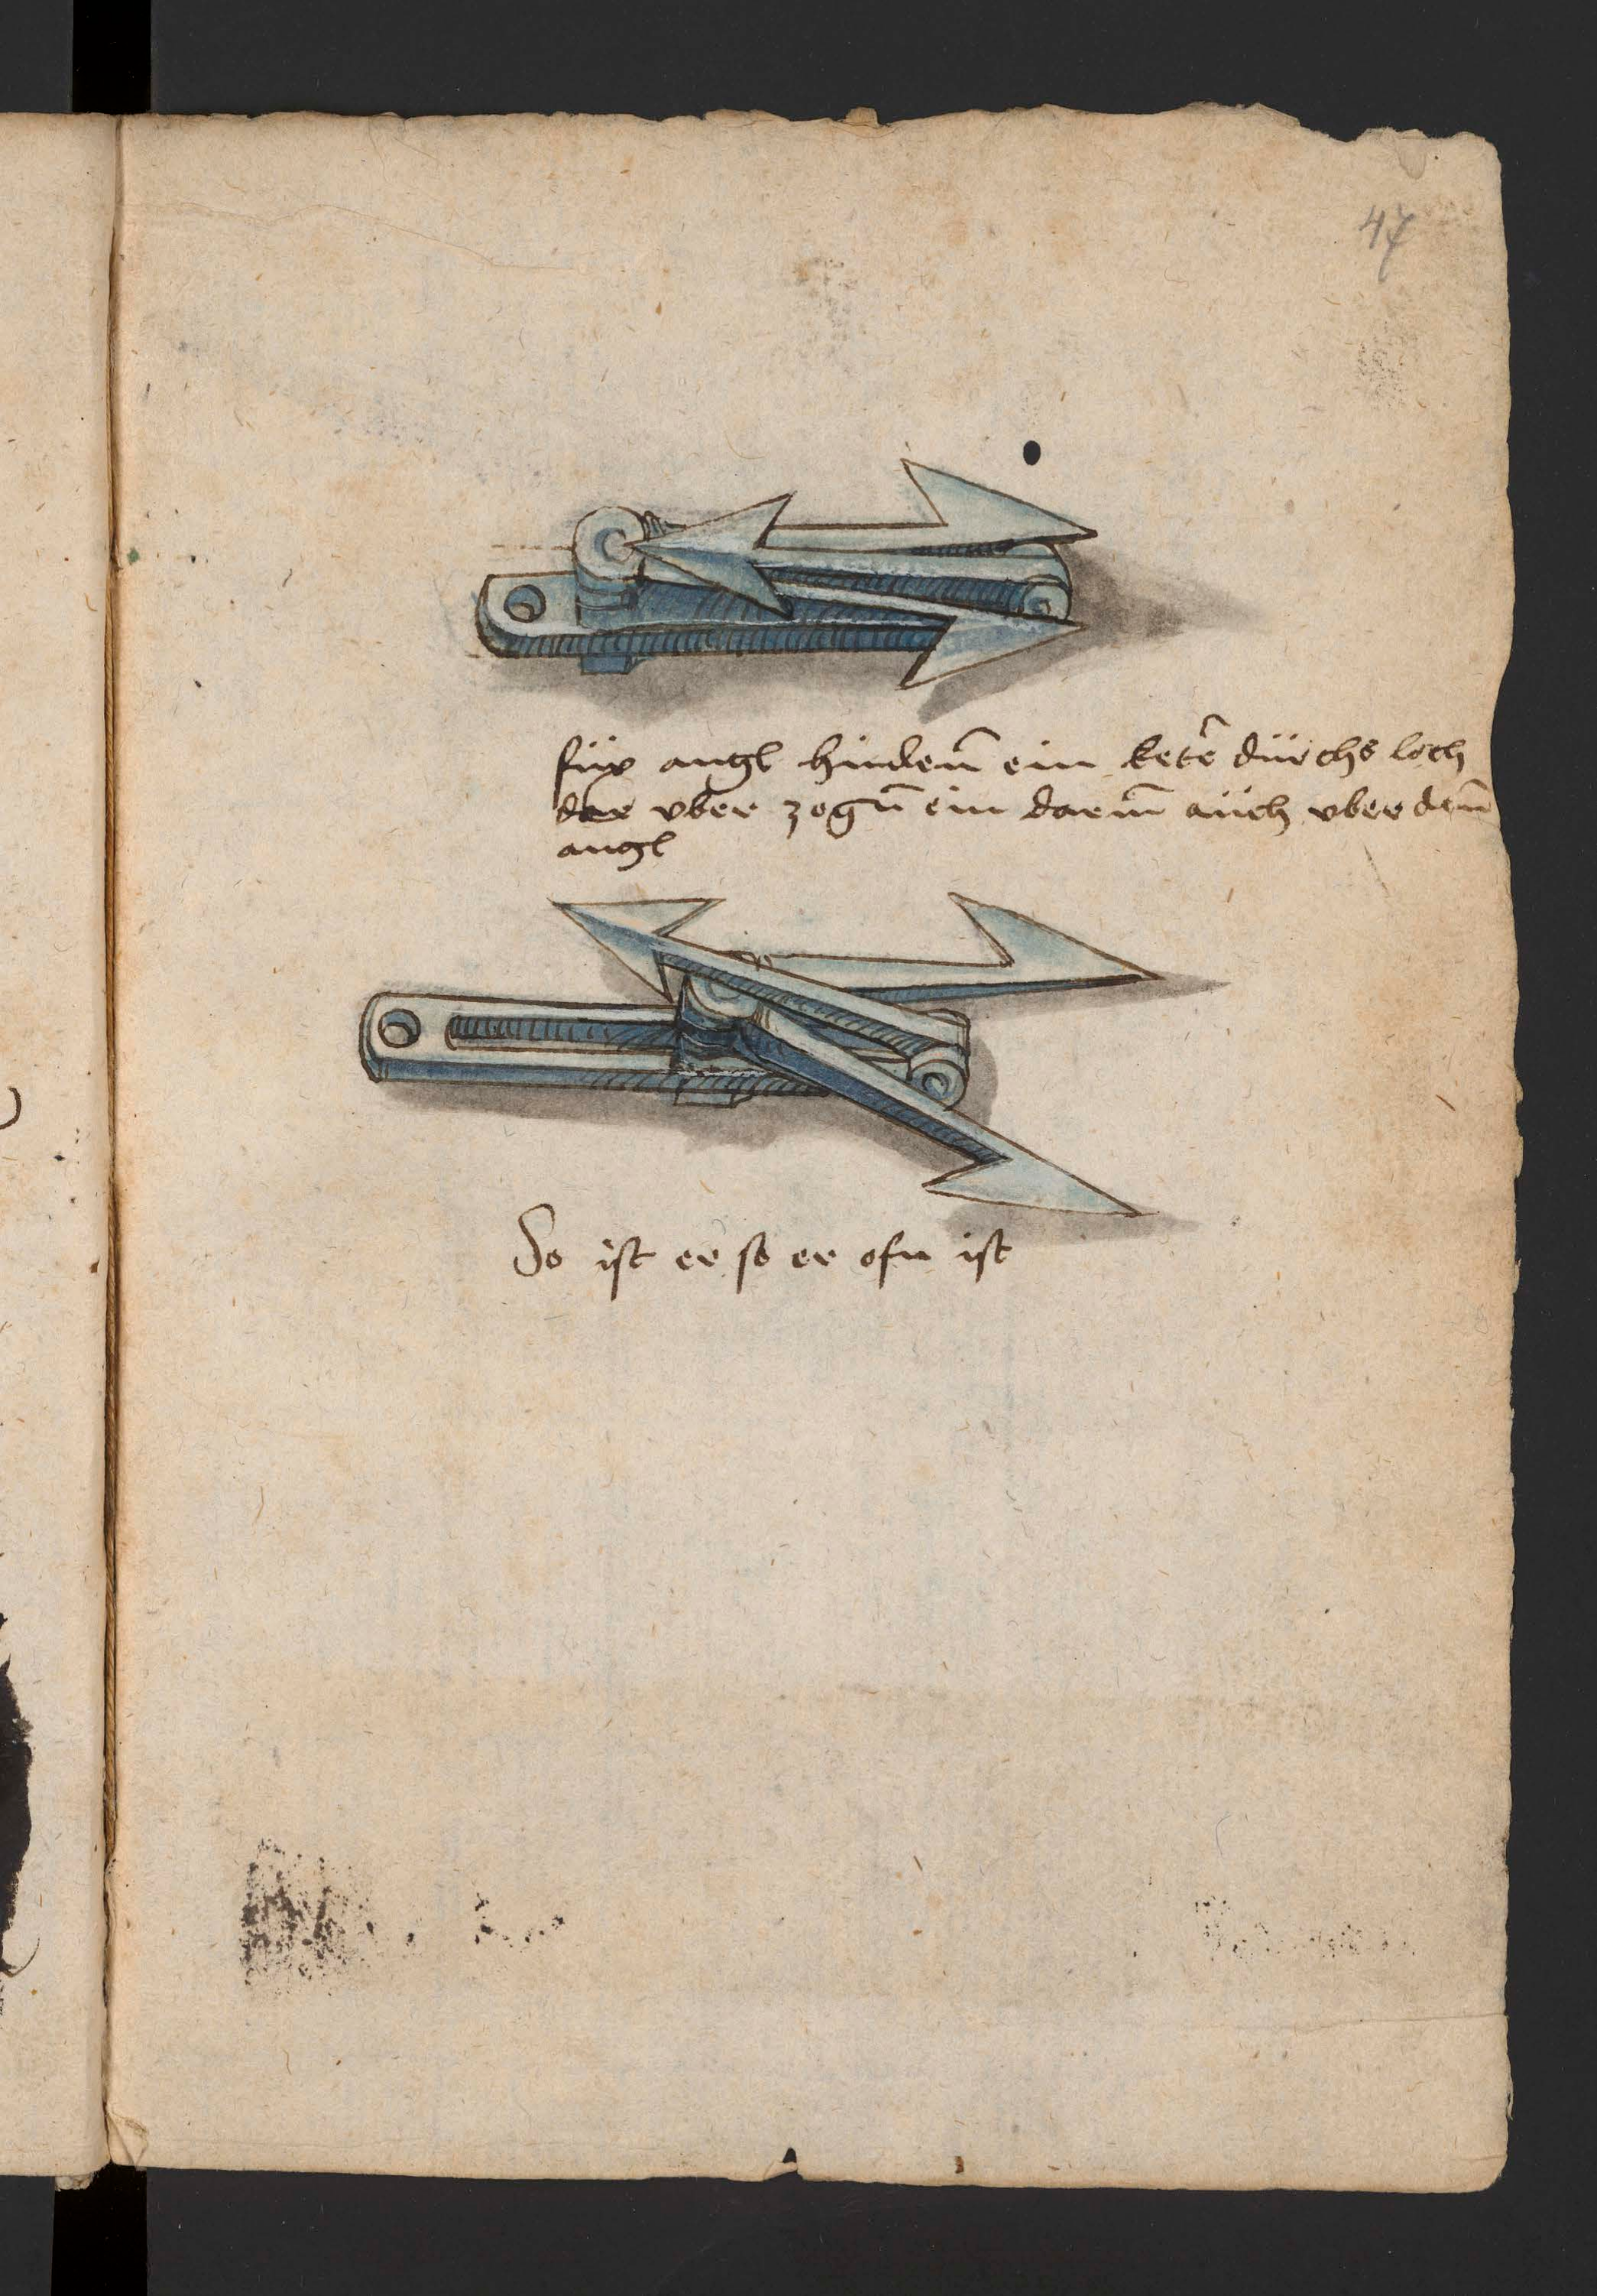 47
füx angl hinden̄ ein ketē dürchs loch
dar vber zogn̄ ein darm̄ aüch vber den̄
angl
So ist er so er ofn ist